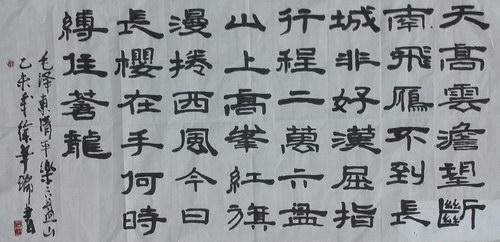 天高雲澹望斷
南飛鴈不到長
城非好漢屈指
行程二萬六盤
山上高峯紅旗
漫捲西風今日
長櫻在手何時
縛住蒼龍
毛澤東清平樂六盤山
乙未年徐瑞書